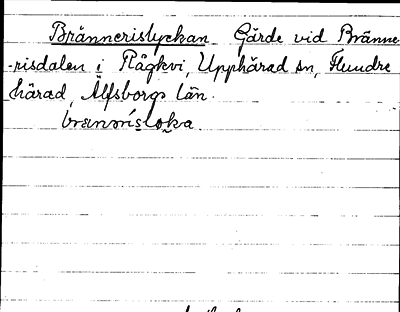 Brännerislyckan Gärde vid Bränne-
-risdalen i Rågkvi, Upphärad sn, Flundre
härad, Älfsborgs län.
brännrisloka.